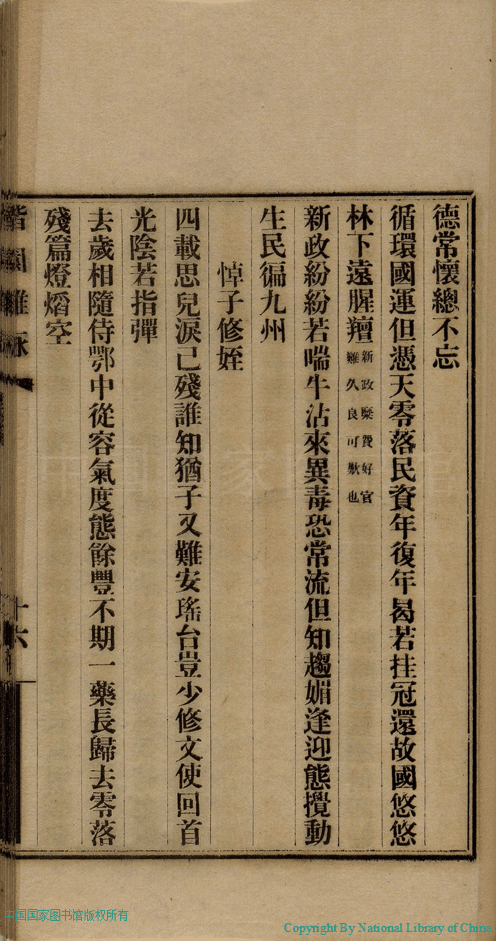 德常懷總不忘
循環國運但憑天零落民資年復年曷若挂冠還故國悠悠
林下遠腥羶新政聚斂好官
難久良可歎也
新政紛紛若喘牛沾來異毒恐常流但知趨媚逢迎態攪動
生民徧九州
悼子修姪
四載思兒淚已殘誰知猶子又難安瑤台豈少修文使回首
光陰若指彈
去歲相隨侍鄂中從容氣度態餘豐不期一藥長歸去零落
殘篇燈熖空
十六
中国国家图书馆版权所有
Copyright By National Library of China